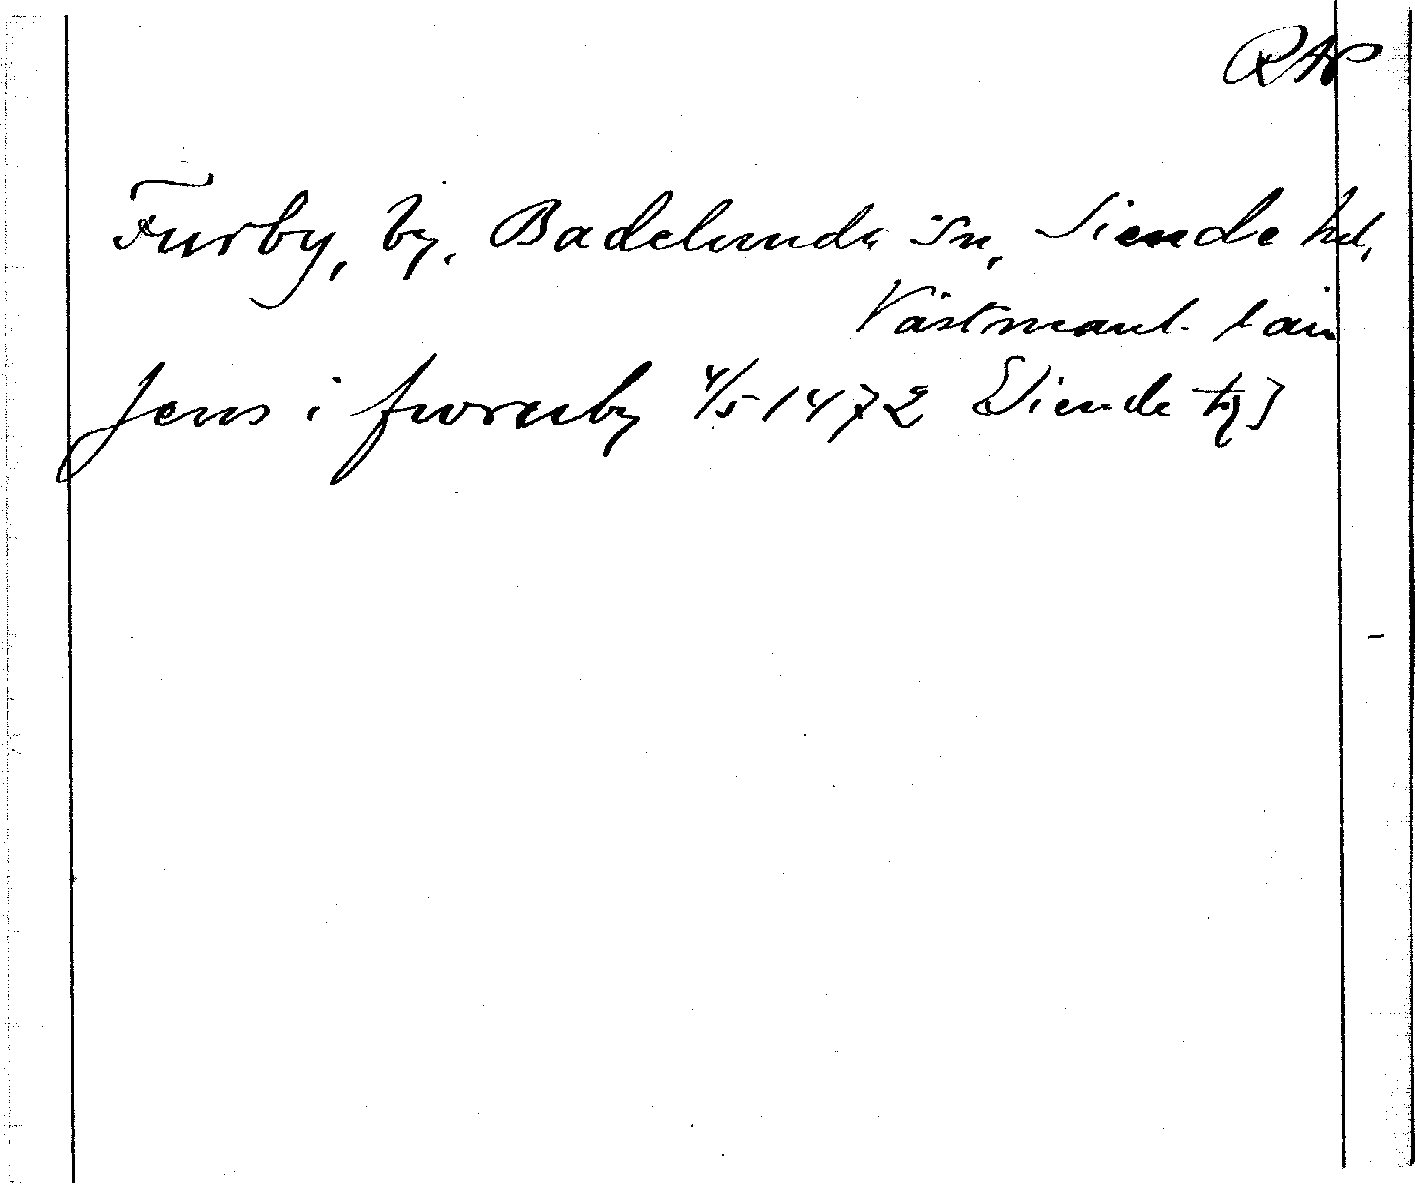 RAP
Furby, by, Badelunda sn, Siende hd,
Västmanl. län
Jens i fwrauby 4/5 1472 [Siende tg]